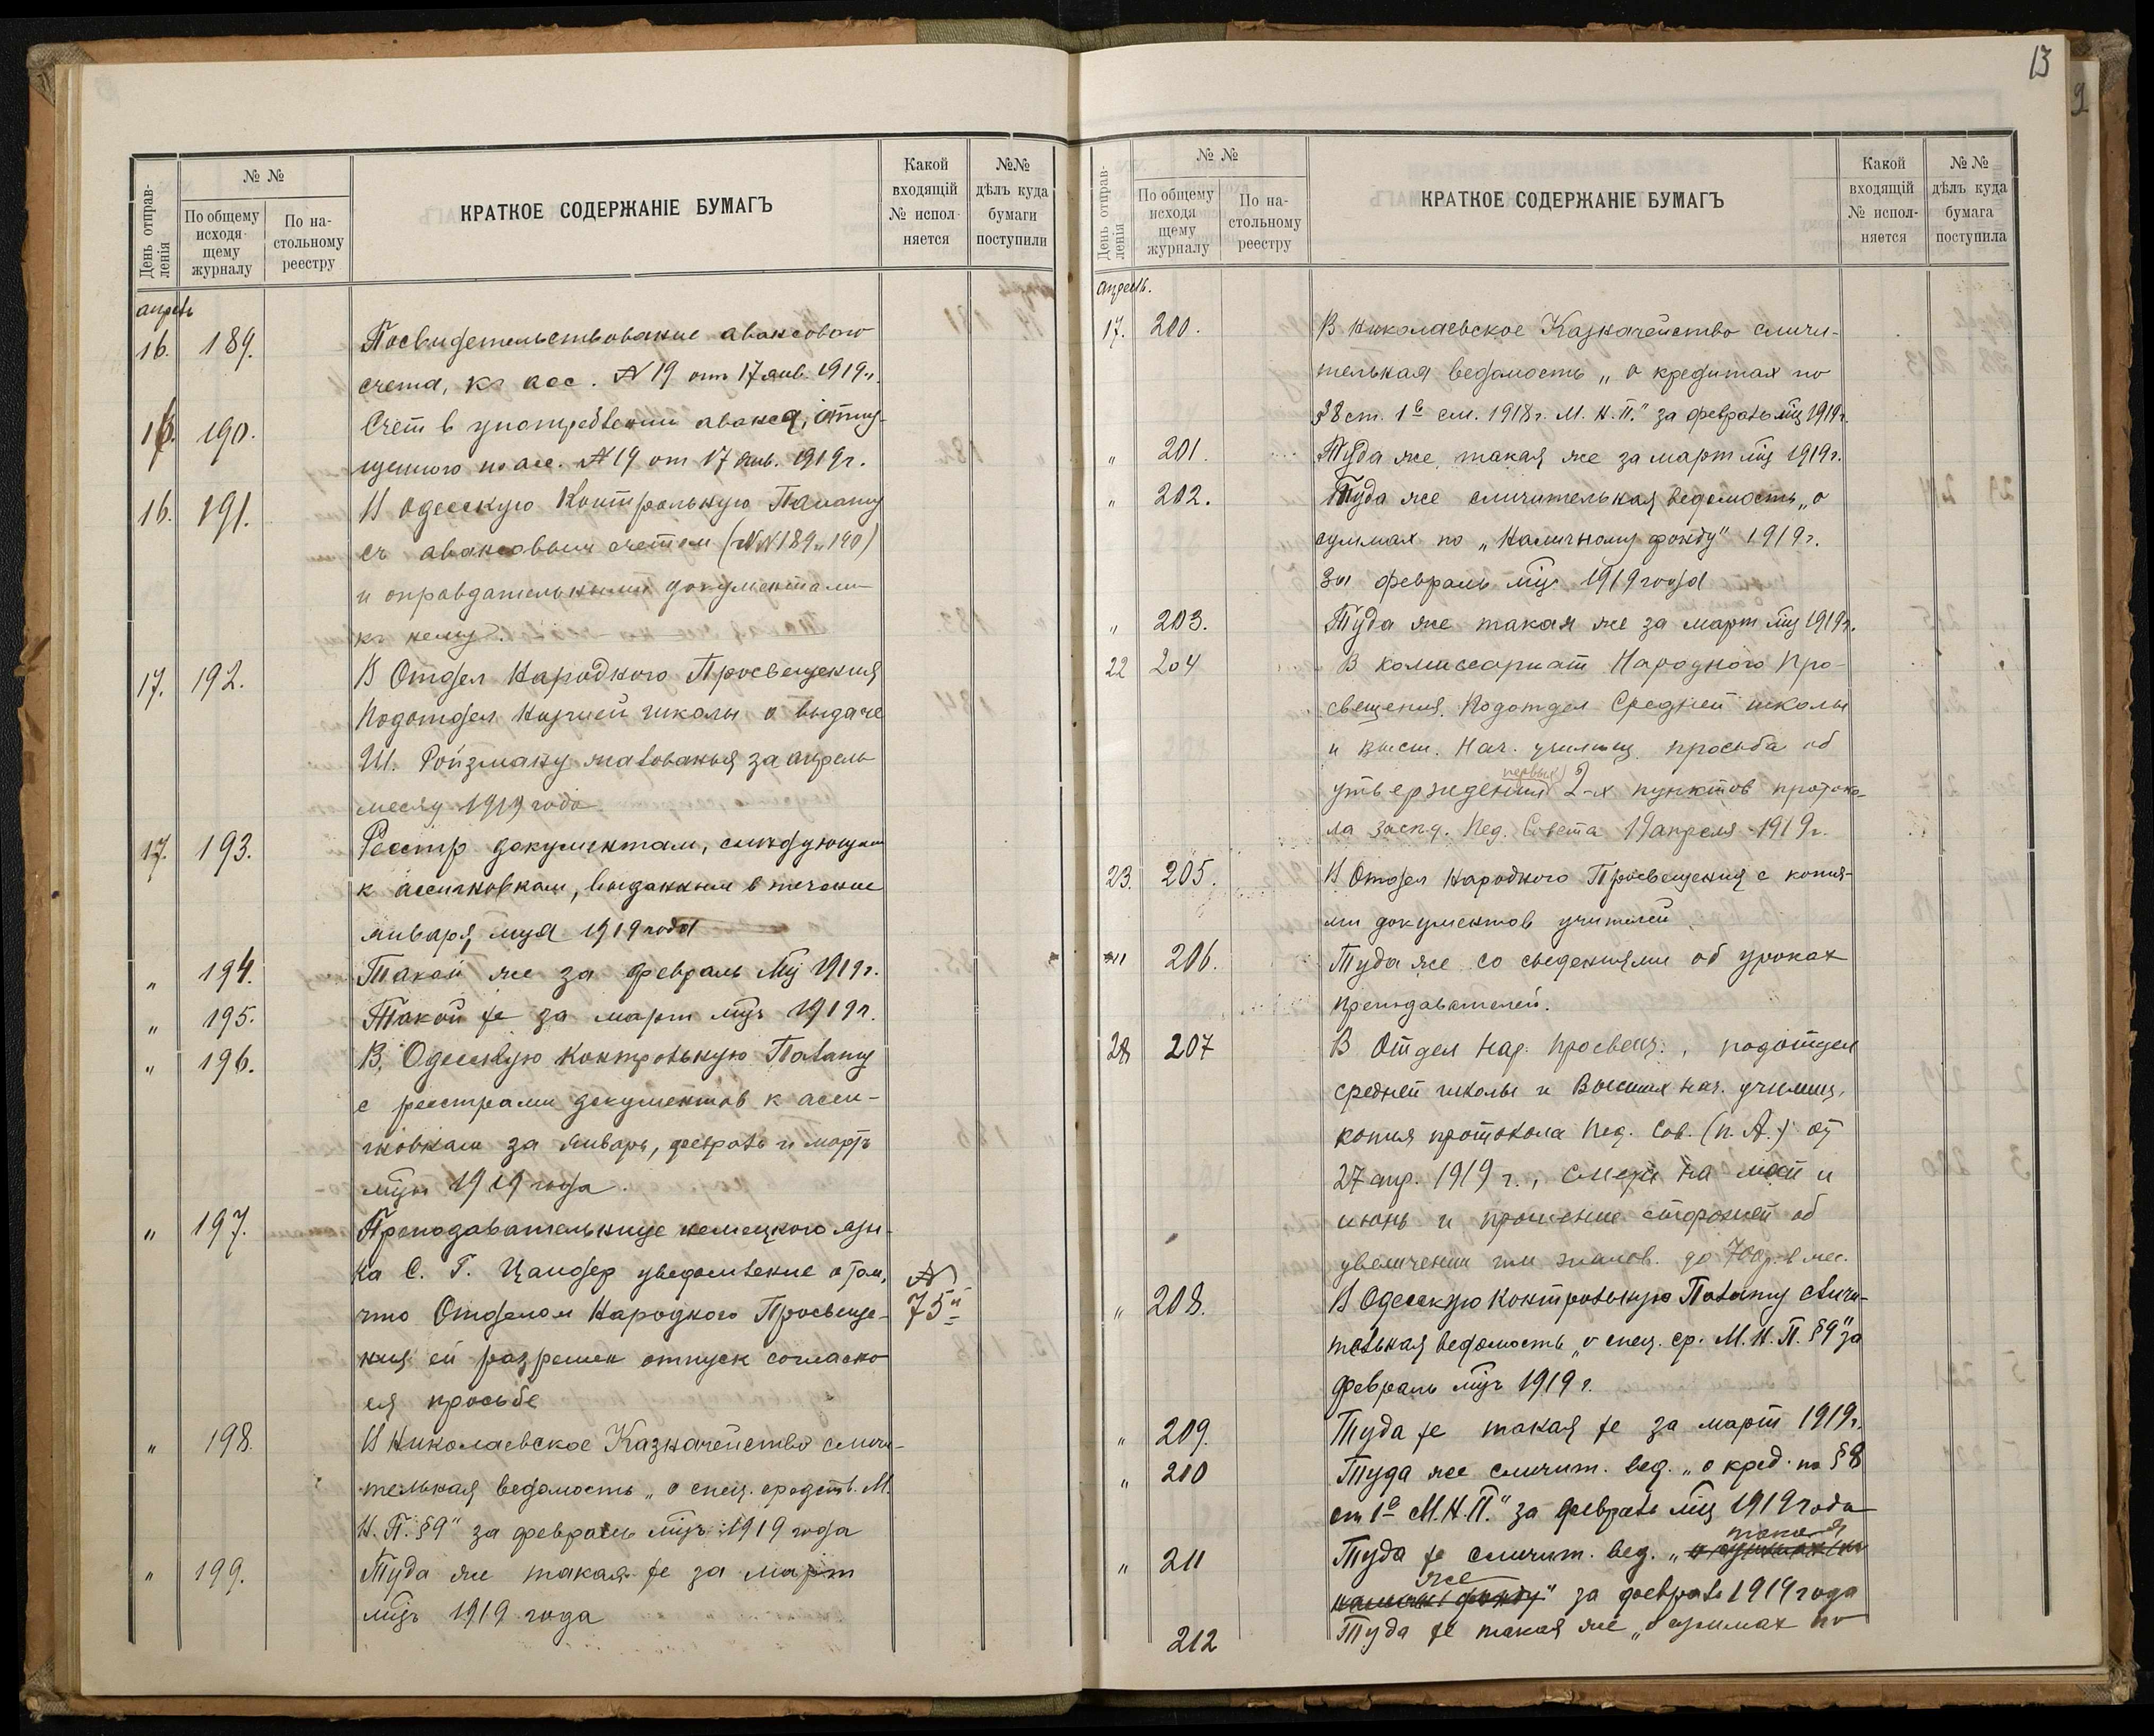 13
День отправ-
ленія
№ №
По общему
исходя-
щему
журналу
По на-
стольному
реестру
КРАТКОЕ СОДЕРЖАНІЕ БУМАГЪ
Какой
входящій
№ испол-
няется
№№
дѣлъ куда
бумаги
поступили
апрель
16. 189. Посвидетельствование авансового
счета, къ асс. №19 от 17 янв. 1919 г.
16. 190. Счет в употреблении аванса, отпу-
щенного по асс. №19 от 17 янв. 1919 г.
16. 191. В Одесскую Контрольную Палату
съ авансовым счетом (№№189 и 190)
и оправдательными документами
къ нему.
17. 192. В Отдел Народного Просвещения
Подотдел Низшей школы о выдаче
Ш. Ройзману жалованья за апрель
месяц 1919 года
17. 193. Реестр документам, следующим
к ассигновкам, выданным в течение
января м-ца 1919 года
„ 194. Такой же за февраль м-ц 1919 г.
„ 195. Такой же за март м-цъ 1919 г.
„ 196. В Одесскую Контрольную Палату
с реестрами документов к асси-
гновкам за январь, февраль и мартъ
м-цы 1919 года.
„ 197. Преподавательнице немецкого язы-
ка С. Г. Цандер уведомление о том, №
что Отделом Народного Просвеще- 75
ния ей разрешен отпуск согласно
ея просьбе
„ 198. В Николаевское Казначейство сличи-
тельная ведомость „о спец. средств. М.
Н. П. §9" за февраль м-цъ 1919 года
„ 199. Туда же такая же за март
м-цъ 1919 года
День отправ-
ленія
№ №
По общему
исходя
щему
журналу
По на-
стольному
реестру
КРАТКОЕ СОДЕРЖАНІЕ БУМАГЪ
Какой
входящій
№ испол-
няется
№ №
дѣлъ куда
бумага
поступила
апрель.
17. 200. В Николаевское Казначейство сличи-
тельная ведомость „о кредитах по
§8 ст. 1 см. 1918 г. М. Н. П." за февраль м-ц 1919 г.
„ 201. Туда же такая же за март м-ц 1919 г.
„ 202. Туда же сличительная ведомость „о
суммах по „Наличному фонду" 1919 г.
за февраль м-ц 1919 года
„ 203. Туда же такая же за март м-ц 1919 г.
22 204 В комиссариат Народного Про-
свещения. Подотдел Средней школы
и высш. нач. училищ просьба об
первых
утверждении 2-х пунктов протоко-
ла засед. Пед. Совета 19 апреля 1919 г.
23. 205. В Отдел Народного Просвещения с копия-
ми документов учителей
„ 206. Туда же со сведениями об уроках
преподавателей.
28 207 В Отдел нар. просвещ., подотдел
средней школы и Высших нач. училищ,
копия протокола Пед. Сов. (п. А.) от
27 апр. 1919 г., смета на май и
июнь и прошение сторожей об
увеличении им жалов. до 700 р. в мес.
„ 208. В Одесскую Контрольную Палату сличи-
тельная ведомость „о спец. ср. М. Н. П. §9" за
февраль м-цъ 1919 г.
„ 209. Туда же такая же за март 1919 г.
„ 210 Туда же сличит. вед. „о кред. по §8
ст 1 М. Н. П." за февраль м-ц 1919 года
такая
„ 211 Туда же сличит. вед. „о суммах по
же
налич. фонду" за февраль 1919 года
212 Туда же такая же „о суммах по